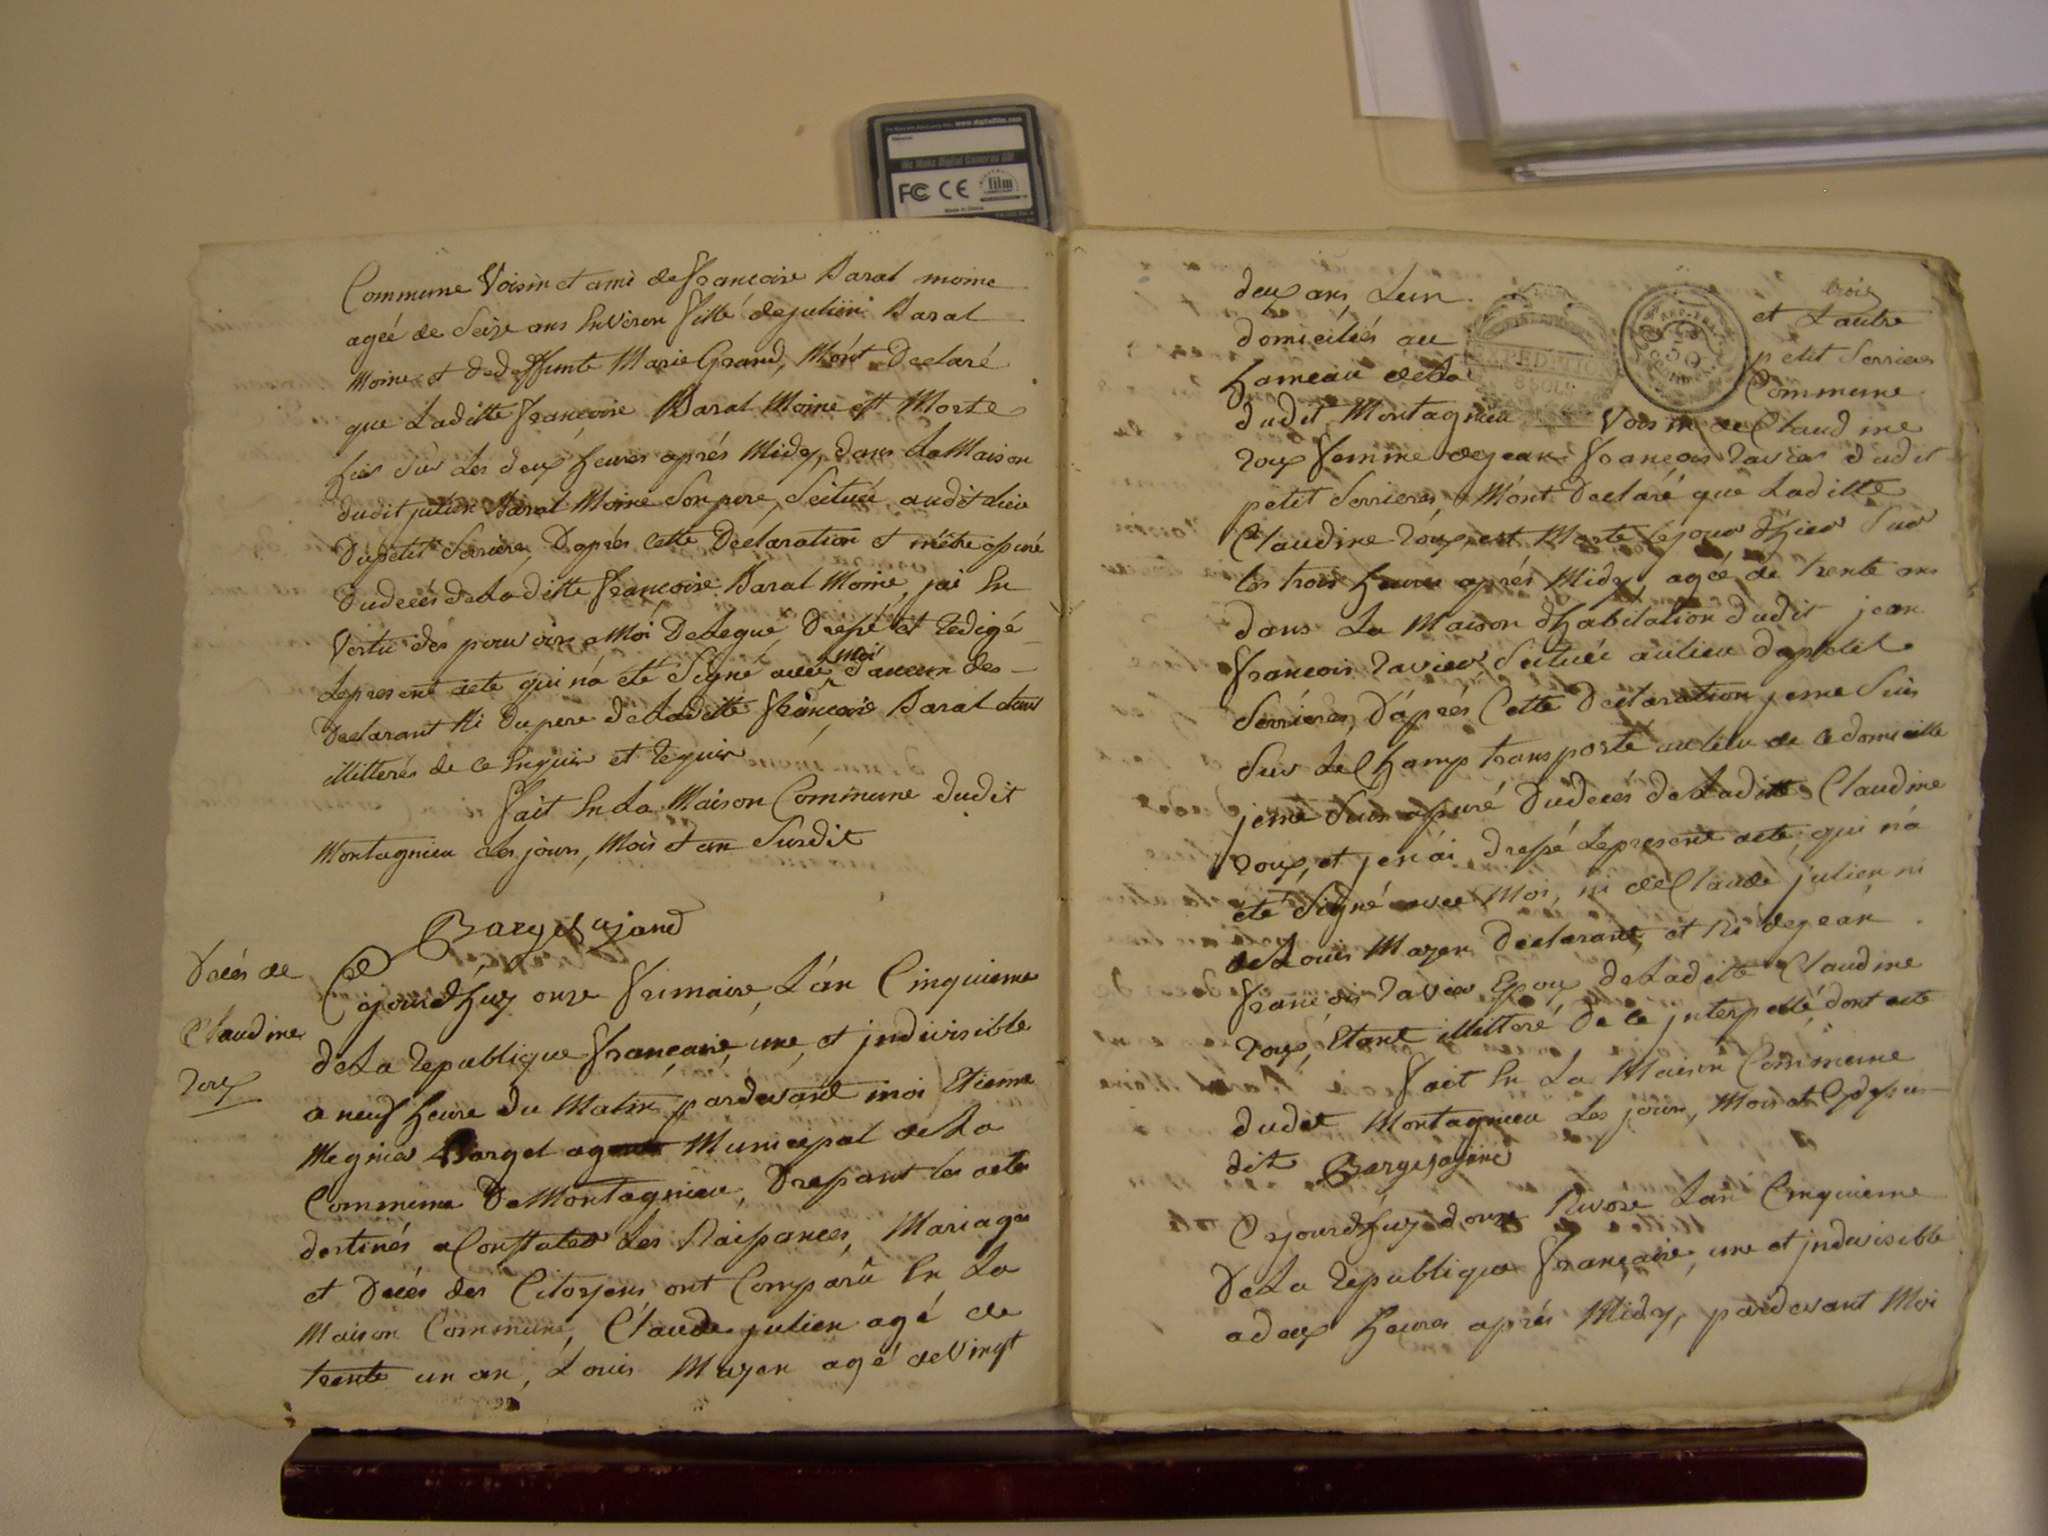 www.digitalfilm.com
We Make Digital Cameras Go!
FC CE film
Commune Voisin et ami de françoise Baral moine
agée de Seize ans Environ fille de julien Baral
moine et de deffunte Marie Grand, M'ont Declaré
que Laditte françoise Baral Moine est Morte
hier sur Les deux heures aprés Midy, dans La Maison
dudit julien Baral Moine Son pere, Scituée audit Lieu
Du petit Serriere, D'aprés Cette Déclaration et m'être assuré
Du decés de Laditte françoise Baral Moine, jai En
Vertu dés pouvoirs a Moi Delegué Dressé et Redigé
Le present acte qui n'a eté Signé avec moi d'aucun des
Declarant Ni Du pere de Laditte françoise Baral
illitterés de ce Enquis et Requis
fait En La Maison Commune dudit
Montagnieu Les jours, Mois et an Susdit
Barget agend
Decés de
Claudine
Roux
Ce jourd'huy onze frimaire L'an Cinquieme
de La Republique françaisé, une, et jndivisible
a neuf heure du Matin, pardevant moi Etienne
Megnier Barget agent Municipal de La
Commune De Montagnieu, Dressant les acte
destinés a Constater Les Naissances, Mariages
et Decés des Citoyens ont Comparû En La
Maison Commune, Claude julien agé de
trente un an, Louis Mazen agé de Vingt
trois
deux ans Lun et L'autre
domiciliés au petit Serrieres
hameau de La Commune
dudit Montagnieu Voisin de Claudine
EXPEDITION
8 SOLS
50
Roux femme de jean françois Ravier dudit
petit Serrieres, M'ont Declaré que Laditte
Claudine Roux, est Morte le jour d'hier Sur
les trois heures aprés Midy, agée de trente ans
dans La Maison d'habitation dudit jean
françois Ravier Scituée au lieu du petit
Serriéres, D'aprés Cette Declaration je me Suis
Sur Le Champ transporté au lieu de ce domicille
je me Suis assuré Du decés de Laditte Claudine
Roux, et j'en ai dressé Le present acte, qui n'a
eté Signé avec Moi, ni de Claude julien ni
de Louis Mazen Déclarant, et Ni de jean
françois Ravier Epoux de Laditte Claudine
Roux, Etant illitteré De ce jnterpellé dont acte
fait En La Maison Commune
dudit Montagnieu Les jour, Mois et
dit Barget agend
Cejourd'huy douze Nivose L'an Cinquieme
De La Republique françaisé, une et jndivisible
a deux heures aprés Midy, pardevant Moi